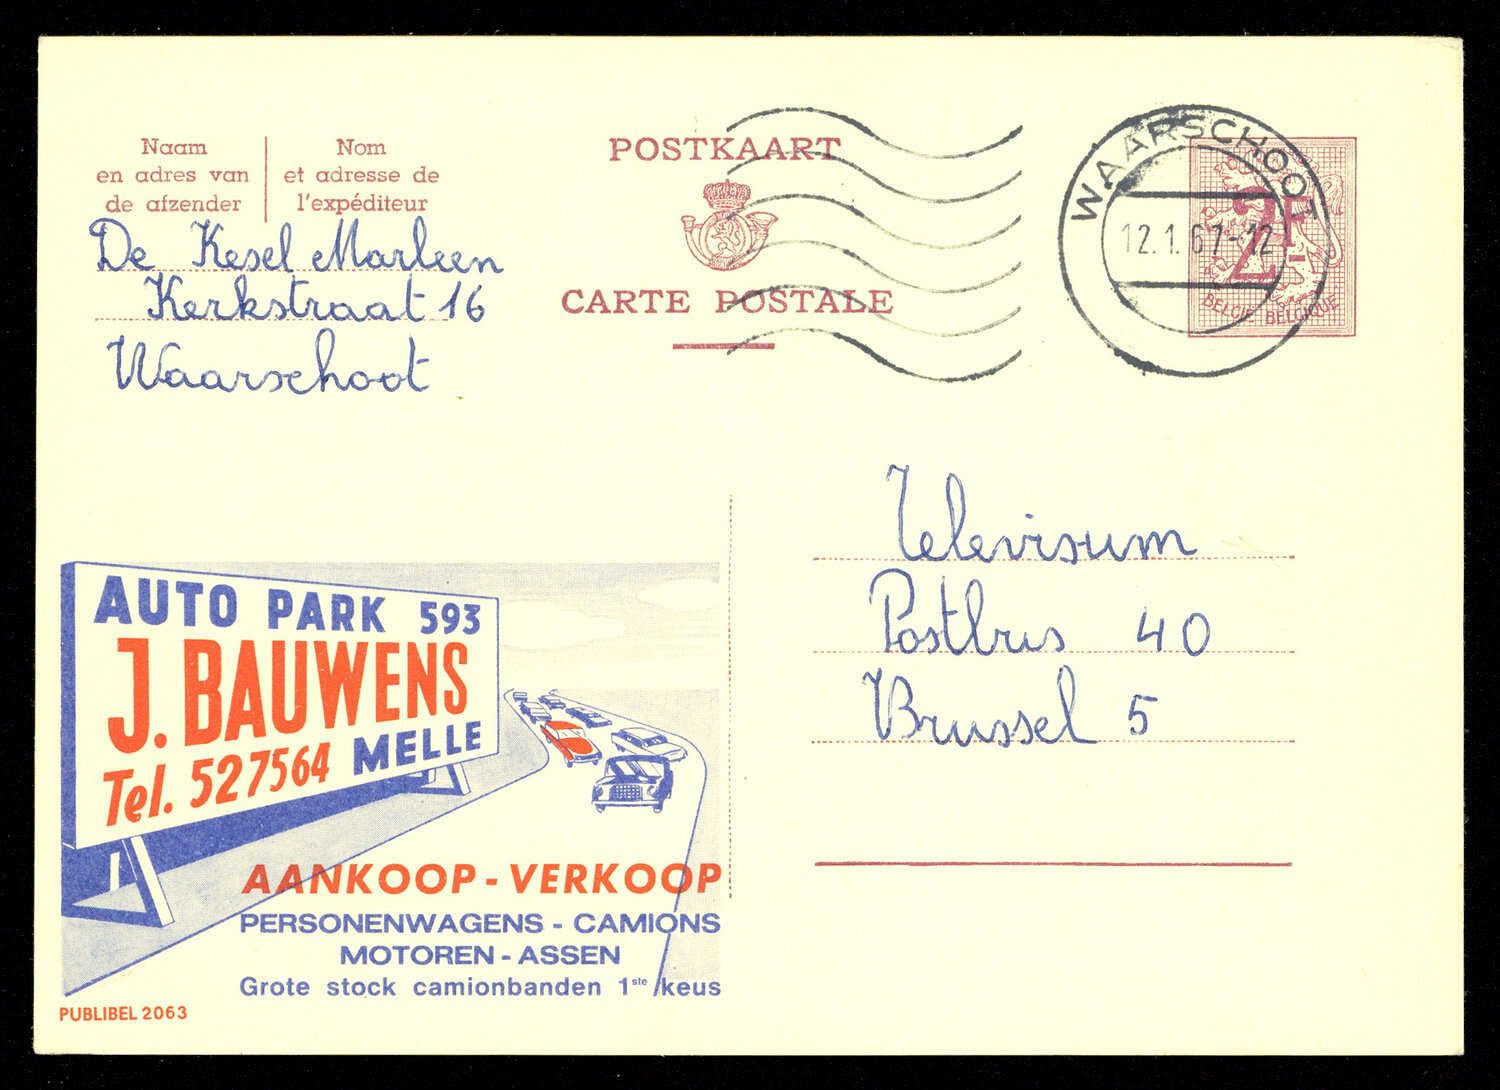 Naam
en adres van
de afzender
Nom
et adresse de
l'expéditeur
De Kesel Marleen
Kerkstraat 16
Waarschoot
POSTKAART
CARTE POSTALE
WAARSCHOOT
12.1.67-12
2F
BELGIE BELGIQUE
Televisum
Postbus 40
Brussel 5
AUTO PARK 593
J. BAUWENS
Tel. 527564 MELLE
AANKOOP - VERKOOP
PERSONENWAGENS - CAMIONS
MOTOREN - ASSEN
Grote stock camionbanden 1ste keus
PUBLIBEL 2063